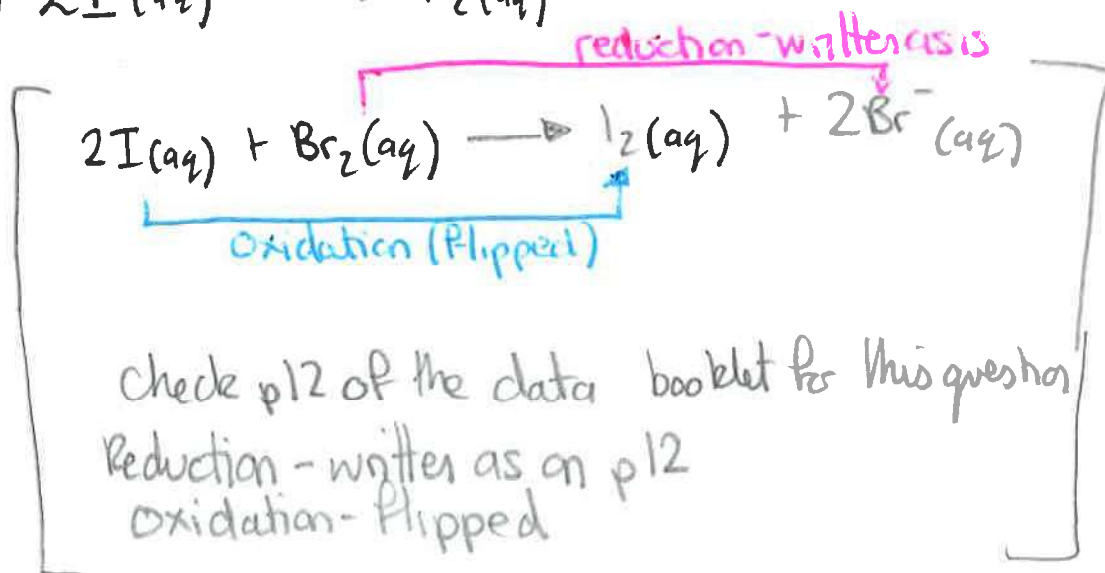 2I (aq) 2(aq)
reduction - written as is
2I(aq) + Br₂(aq) → I₂(aq) + 2Br⁻(aq)
Oxidation (flipped)
Check p12 of the data booklet for this question
Reduction - written as on p12
Oxidation - flipped